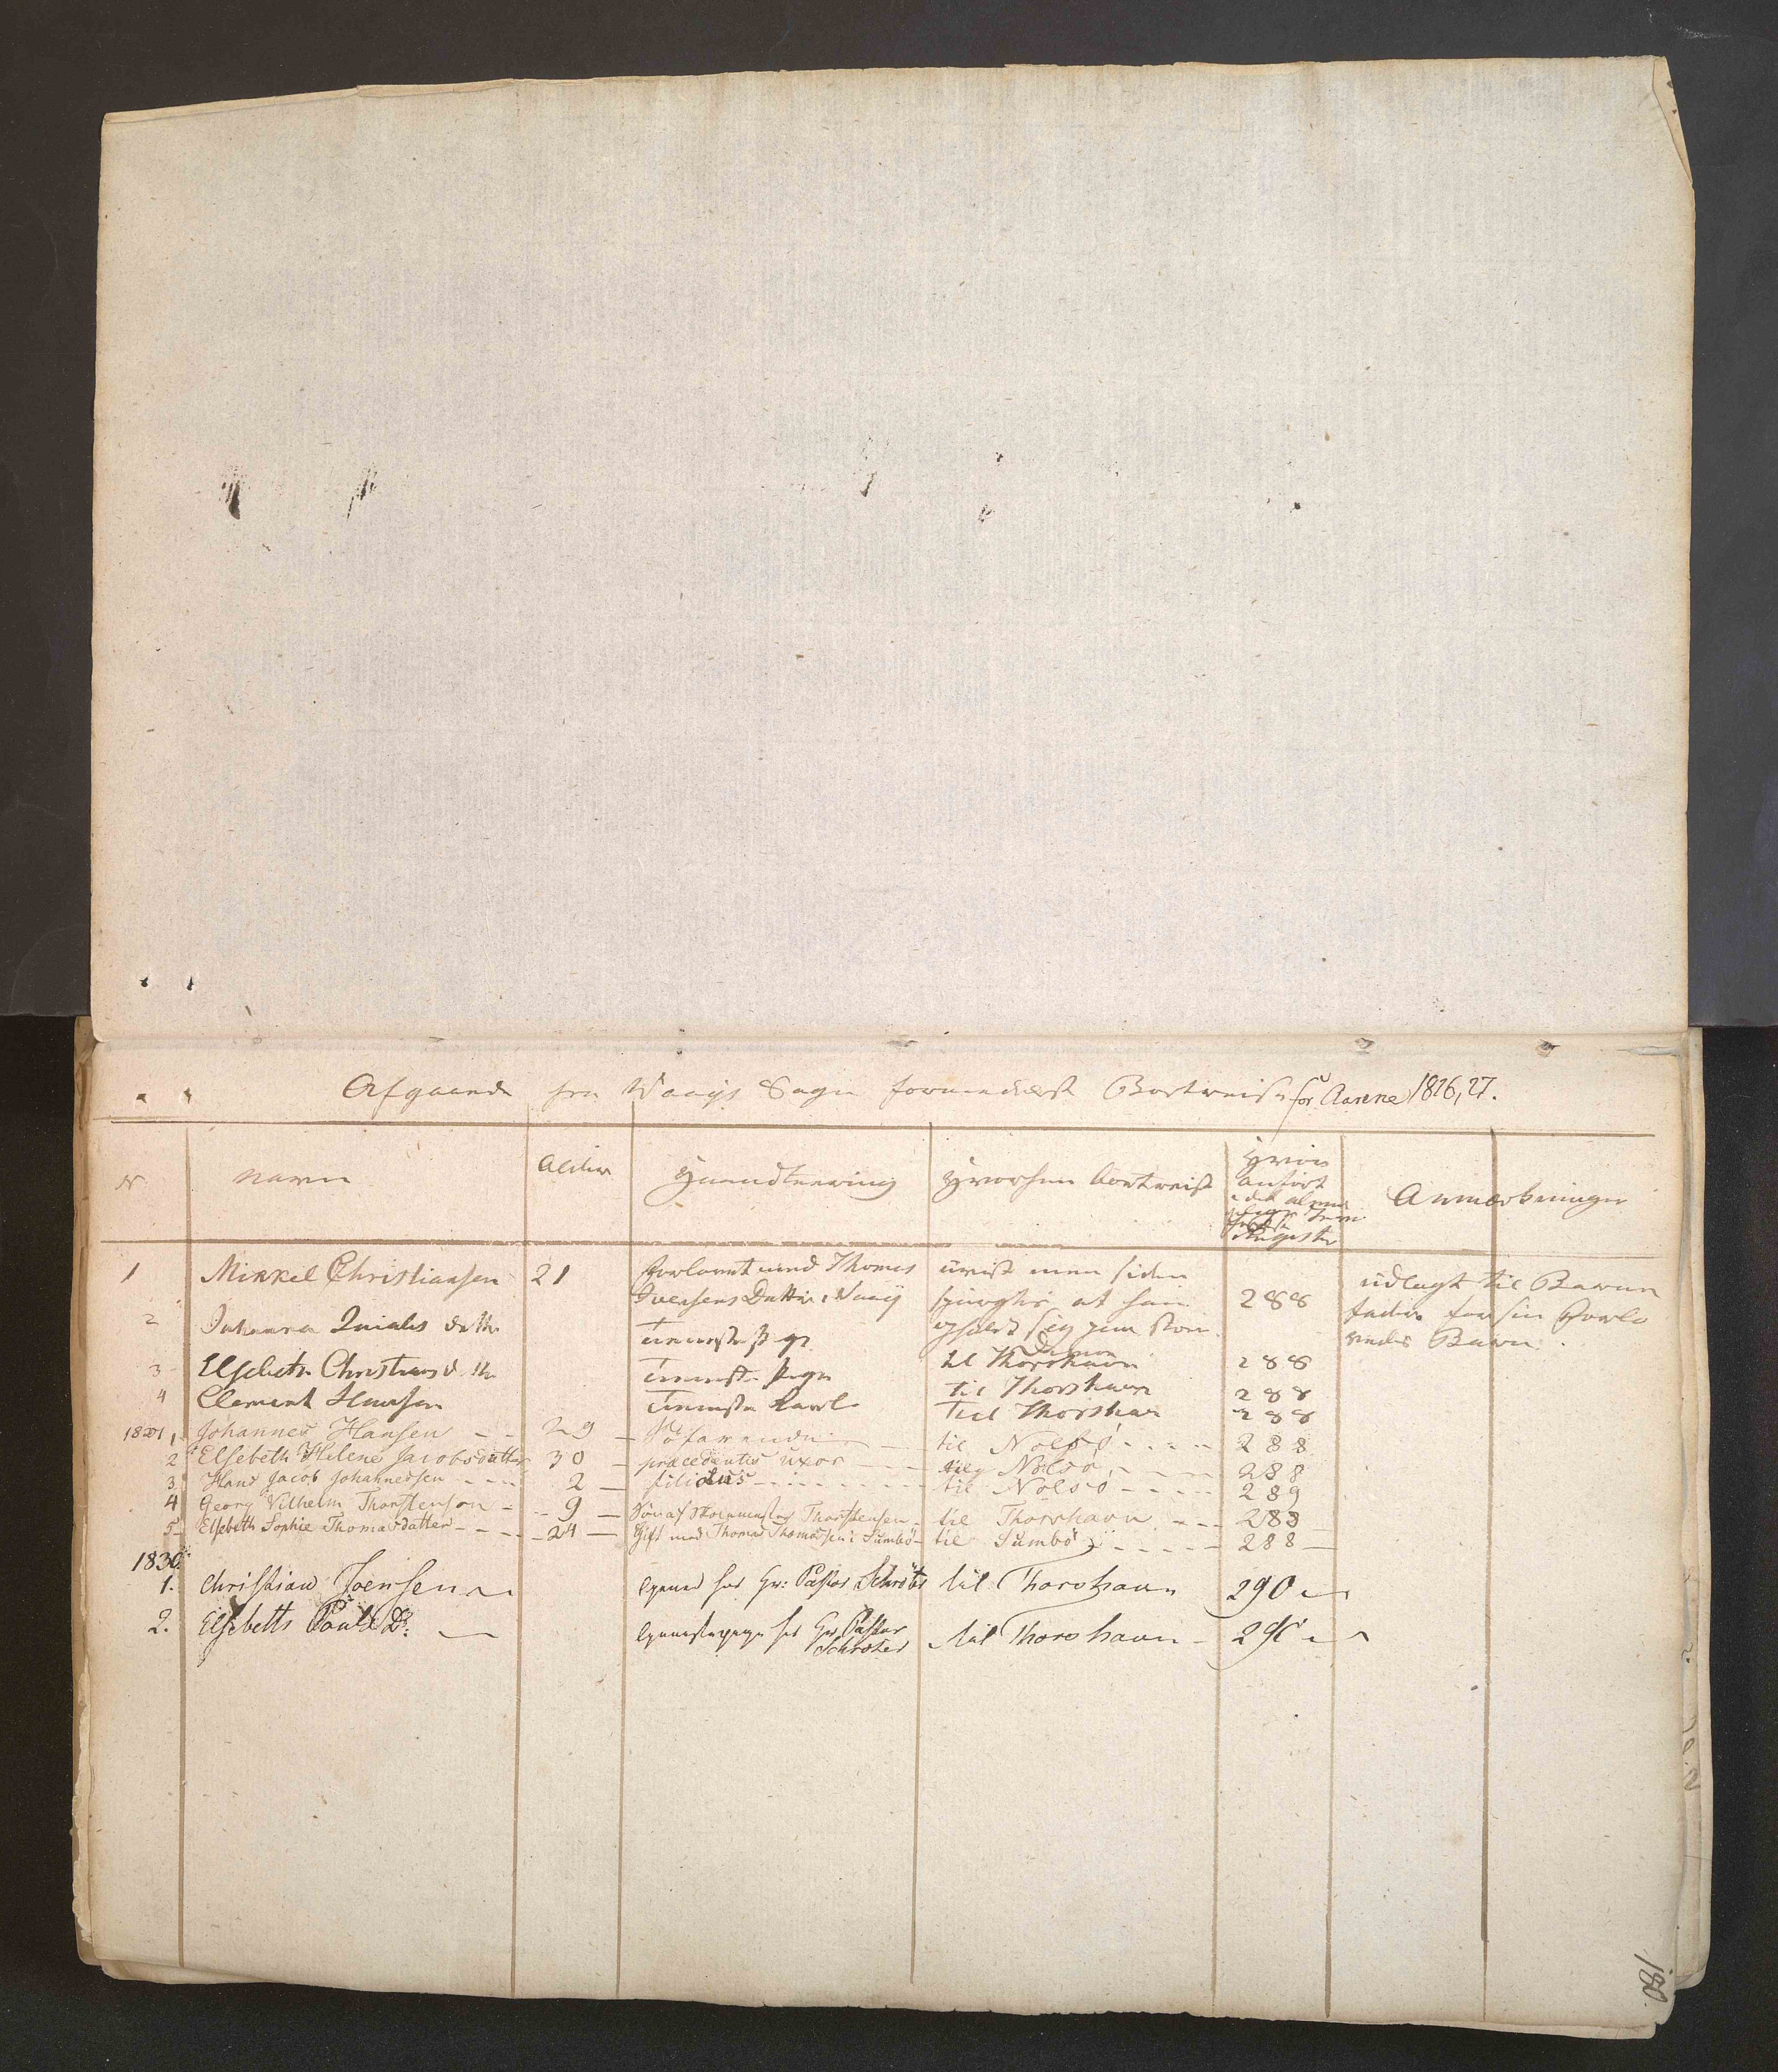 Afgaaende fra Waags Sogn formedelst Bortreise for Aarene 1826, 27.
N Navn Alder Haandteering Hvorhen bortreist Hvor anført i det almindelige Jevnførelses Register Anmærkninger
1 Mikkel Christiansen 21 forlovet med Thomas Ivensens Datter i Vaag uvist men siden spurgtes at han opholdt sig paa 288 udlagt til Barnefader for sin Forlovedes Barn.
2 Johanna datter Tienestepige til Thorshavn 288
3 Elsebeth Christens d. Tieneste Pige til Thorshavn 288
4 Clement Hansen Tieneste Karl til Thorshavn 288
1, Johannes Hansen 29 Søfarende til Nolsø 288
2 Elsebeth Helene Jacobsdatter 30 præcedentis uxor til Nolsø 288
3 Hans Jacob Johannessen 2 filiolus til Nolsø 289
4 Georg Vilhelm Thorstensen 9 Søn af Thorstensen til Thorshavn 288
5 Elsebeth Sophie Thomasdatter 24 Gift med Thomas Thomasen i Sumbø til Sumbø 288
1830.
1. Christian Joensen tjener hos Hr: Pastor Schrøter til Thorshavn 290
2. Elsebeth Pauls D: Tjenestepige hos Hr. Pastor Schrøter til Thorshavn 290
180.